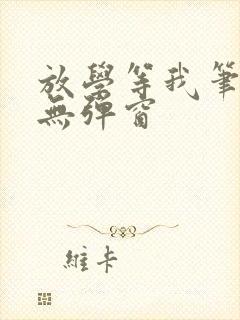 放學等我筆
無彈窗
維卡